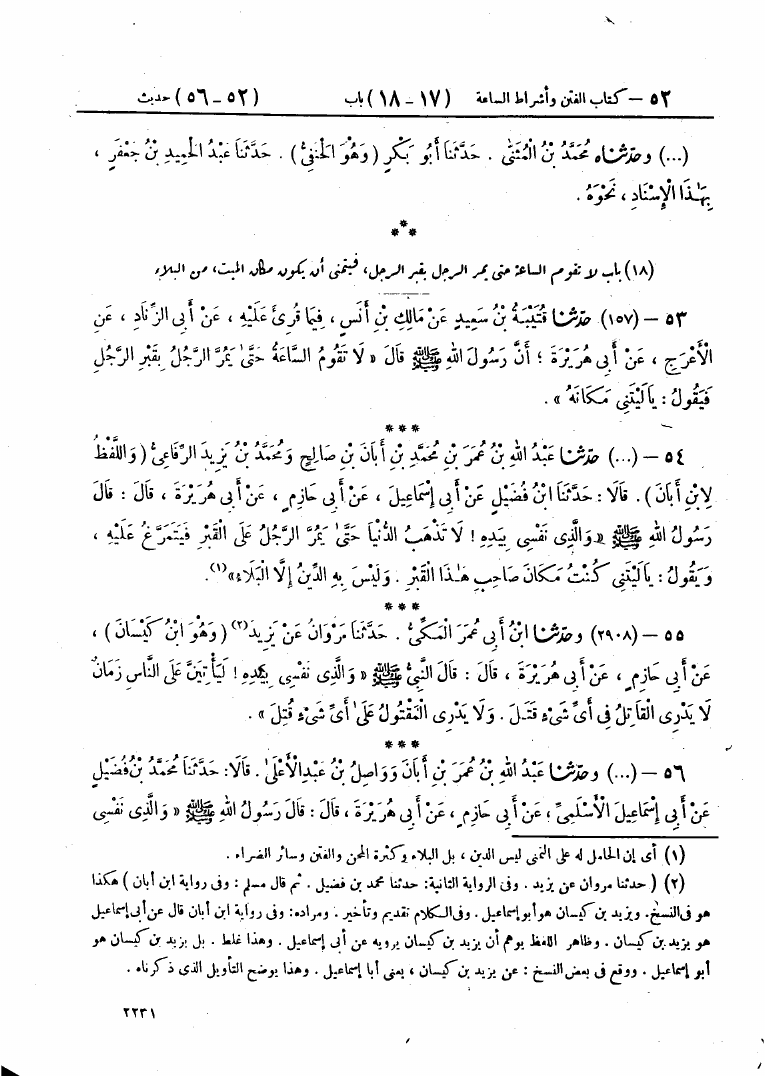 ٥٢ – كتاب الفتن وأشراط الساعة (١٧ - ١٨) باب (٥٢ - ٥٦) حديث
(...) وحَدَّثَنَاه مُحَمَّدُ بْنُ الْمُثَنَّىٰ . حَدَّثَنَا أَبُو بَكْرٍ (وَهُوَ الْحَنَفِيُّ) . حَدَّثَنَا عَبْدُ الْحَمِيدِ بْنُ جَعْفَرٍ ،
بِهَٰذَا الْإِسْنَادِ ، نَحْوَهُ .
***
(١٨) باب لا تقوم الساعة حتى يمر الرجل بقبر الرجل، فيتمنى أن يكون مكان الميت، من البلاء
٥٣ – (١٥٧) حَدَّثَنَا قُتَيْبَةُ بْنُ سَعِيدٍ عَنْ مَالِكِ بْنِ أَنَسٍ ، فِيمَا قُرِئَ عَلَيْهِ ، عَنْ أَبِي الزِّنَادِ ، عَنِ
الْأَعْرَجِ ، عَنْ أَبِي هُرَيْرَةَ ؛ أَنَّ رَسُولَ اللهِ ﷺ قَالَ « لَا تَقُومُ السَّاعَةُ حَتَّىٰ يَمُرَّ الرَّجُلُ بِقَبْرِ الرَّجُلِ
فَيَقُولُ : يَا لَيْتَنِي مَكَانَهُ » .
***
٥٤ – (...) حَدَّثَنَا عَبْدُ اللهِ بْنُ عُمَرَ بْنِ مُحَمَّدِ بْنِ أَبَانَ بْنِ صَالِحٍ وَمُحَمَّدُ بْنُ يَزِيدَ الرِّفَاعِيُّ (وَاللَّفْظُ
لِابْنِ أَبَانَ) . قَالَا : حَدَّثَنَا ابْنُ فُضَيْلٍ عَنْ أَبِي إِسْمَاعِيلَ ، عَنْ أَبِي حَازِمٍ ، عَنْ أَبِي هُرَيْرَةَ ، قَالَ : قَالَ
رَسُولُ اللهِ ﷺ «وَالَّذِي نَفْسِي بِيَدِهِ ! لَا تَذْهَبُ الدُّنْيَا حَتَّىٰ يَمُرَّ الرَّجُلُ عَلَى الْقَبْرِ فَيَتَمَرَّغُ عَلَيْهِ ،
وَيَقُولُ : يَا لَيْتَنِي كُنْتُ مَكَانَ صَاحِبِ هَٰذَا الْقَبْرِ . وَلَيْسَ بِهِ الدِّينُ إِلَّا الْبَلَاءُ»(١).
***
٥٥ – (٢٩٠٨) وحَدَّثَنَا ابْنُ أَبِي عُمَرَ الْمَكِّيُّ . حَدَّثَنَا مَرْوَانُ عَنْ يَزِيدَ(٢) (وَهُوَ ابْنُ كَيْسَانَ) ،
عَنْ أَبِي حَازِمٍ ، عَنْ أَبِي هُرَيْرَةَ ، قَالَ : قَالَ النَّبِيُّ ﷺ « وَالَّذِي نَفْسِي بِيَدِهِ ! لَيَأْتِيَنَّ عَلَى النَّاسِ زَمَانٌ
لَا يَدْرِي الْقَاتِلُ فِي أَيِّ شَيْءٍ قَتَلَ . وَلَا يَدْرِي الْمَقْتُولُ عَلَىٰ أَيِّ شَيْءٍ قُتِلَ » .
***
٥٦ – (...) وحَدَّثَنَا عَبْدُ اللهِ بْنُ عُمَرَ بْنِ أَبَانَ وَوَاصِلُ بْنُ عَبْدِ الْأَعْلَىٰ . قَالَا: حَدَّثَنَا مُحَمَّدُ بْنُ فُضَيْلٍ
عَنْ أَبِي إِسْمَاعِيلَ الْأَسْلَمِيِّ ، عَنْ أَبِي حَازِمٍ ، عَنْ أَبِي هُرَيْرَةَ ، قَالَ : قَالَ رَسُولُ اللهِ ﷺ « وَالَّذِي نَفْسِي
(١) أى إن الحامل له على التمنى ليس الدين ، بل البلاء وكثرة المحن والفتن وسائر الضراء .
(٢) ( حدثنا مروان عن يزيد . وفى الرواية الثانية: حدثنا محمد بن فضيل . ثم قال مسلم : وفى رواية ابن أبان ) هكذا
هو فى النسخ. ويزيد بن كيسان هو أبو إسماعيل . وفى الكلام تقديم وتأخير . ومراده: وفى رواية ابن أبان قال عن أبى إسماعيل
هو يزيد بن كيسان . وظاهر اللفظ يوهم أن يزيد بن كيسان يرويه عن أبى إسماعيل . وهذا غلط . بل يزيد بن كيسان هو
أبو إسماعيل . ووقع فى بعض النسخ : عن يزيد بن كيسان ، يعنى أبا إسماعيل . وهذا يوضح التأويل الذى ذكرناه .
٢٢٣١